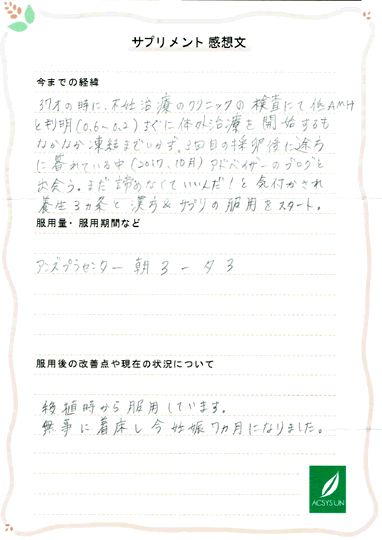 サプリメント 感想文
今までの経緯
37才の時に、不妊治療のクリニックの検査にて低AMH
と判明(0.6~0.2)すぐに体外治療を開始するも
なかなか凍結までいかず、3回目の採卵後に途方
に暮れている中(2017、10月)アドバイザーのブログと
出会う。まだ諦めなくていいんだ!と気付かされ
養生3カ条と漢方&サプリの服用をスタート。
服用量・服用期間など
アンズプラセンター 朝3-夕3
服用後の改善点や現在の状況について
移植時から服用しています。
無事に着床し今妊娠7カ月になりました。
ACSYS UN